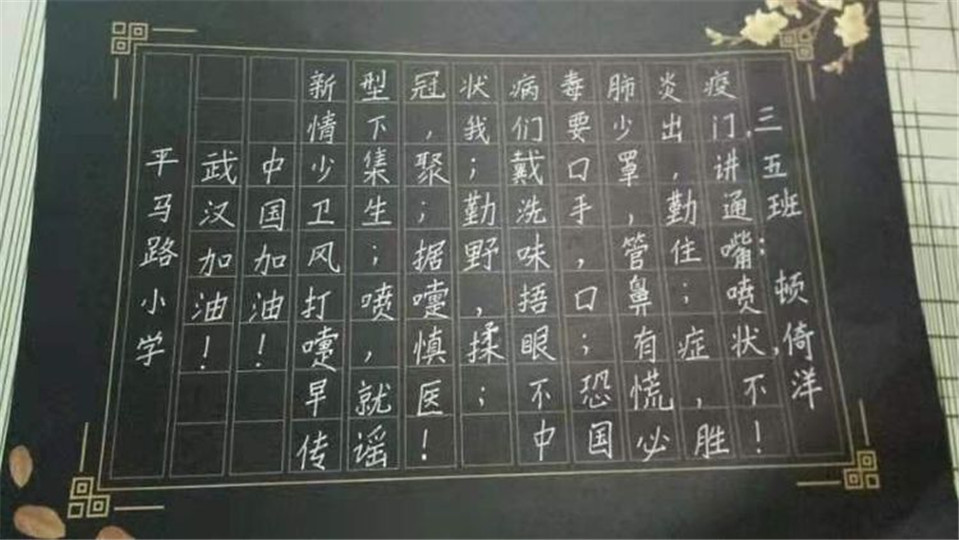 三五班
顿倚洋
新型冠状病毒肺炎疫
情下，我们要少出门，
少集聚；戴口罩，讲
卫生；勤洗手，勤通
风；据野味，管住嘴；
打喷嚏，捂口鼻；喷
嚏，慎揉眼；有症状，
早就医；不恐慌，不
传谣！中国必胜！
中国加油！
武汉加油！
平马路小学